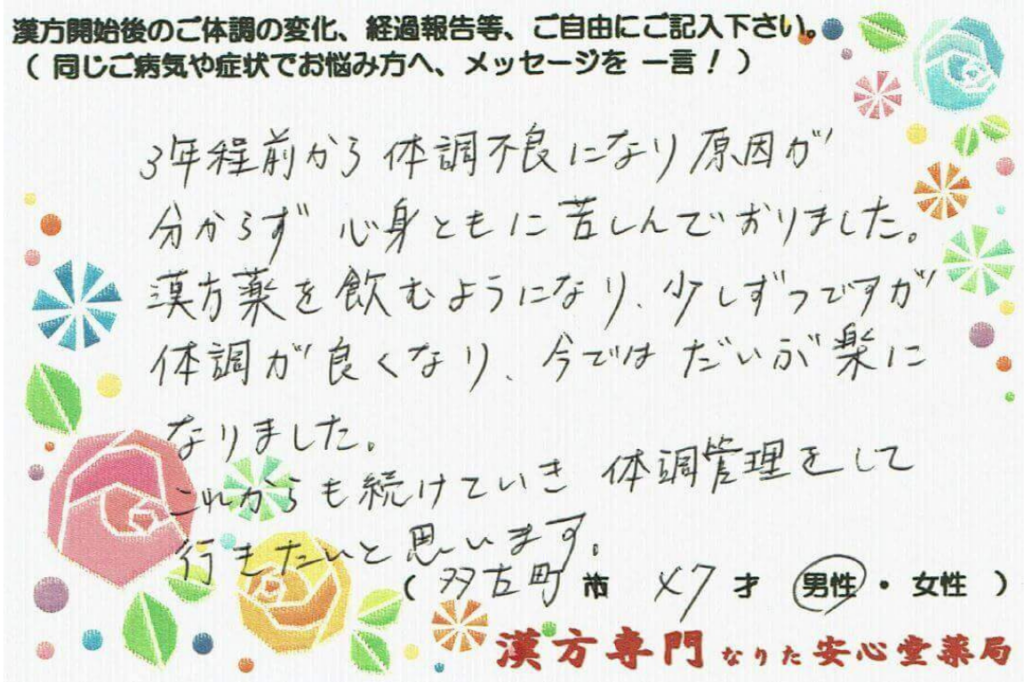 漢方開始後のご体調の変化、経過報告等、ご自由にご記入下さい。
（ 同じご病気や症状でお悩み方へ、メッセージを 一言！ ）
3年程前から体調不良になり原因が
分からず 心身ともに苦しんでおりました。
漢方薬を飲むようになり、少しずつですが
体調が良くなり、今では だいぶ楽に
なりました。
これからも続けていき 体調管理をして
行きたいと思います。
（ 町 市 47 才 男性 ・ 女性 ）
漢方専門 なりた 安心堂薬局